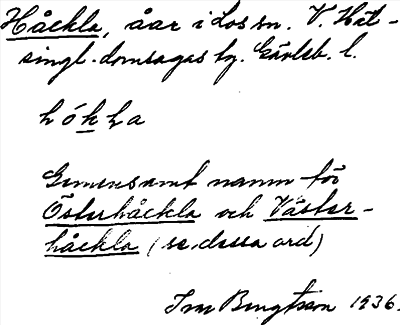 Håckla, åar i Los sn. V. Häl-
singl. domsagas tg. Gävleb. l.
hókla
Gemensamt namn för
Österhåckla och Väster-
håckla (se dessa ord)
Ivar Bengtsson 1936.